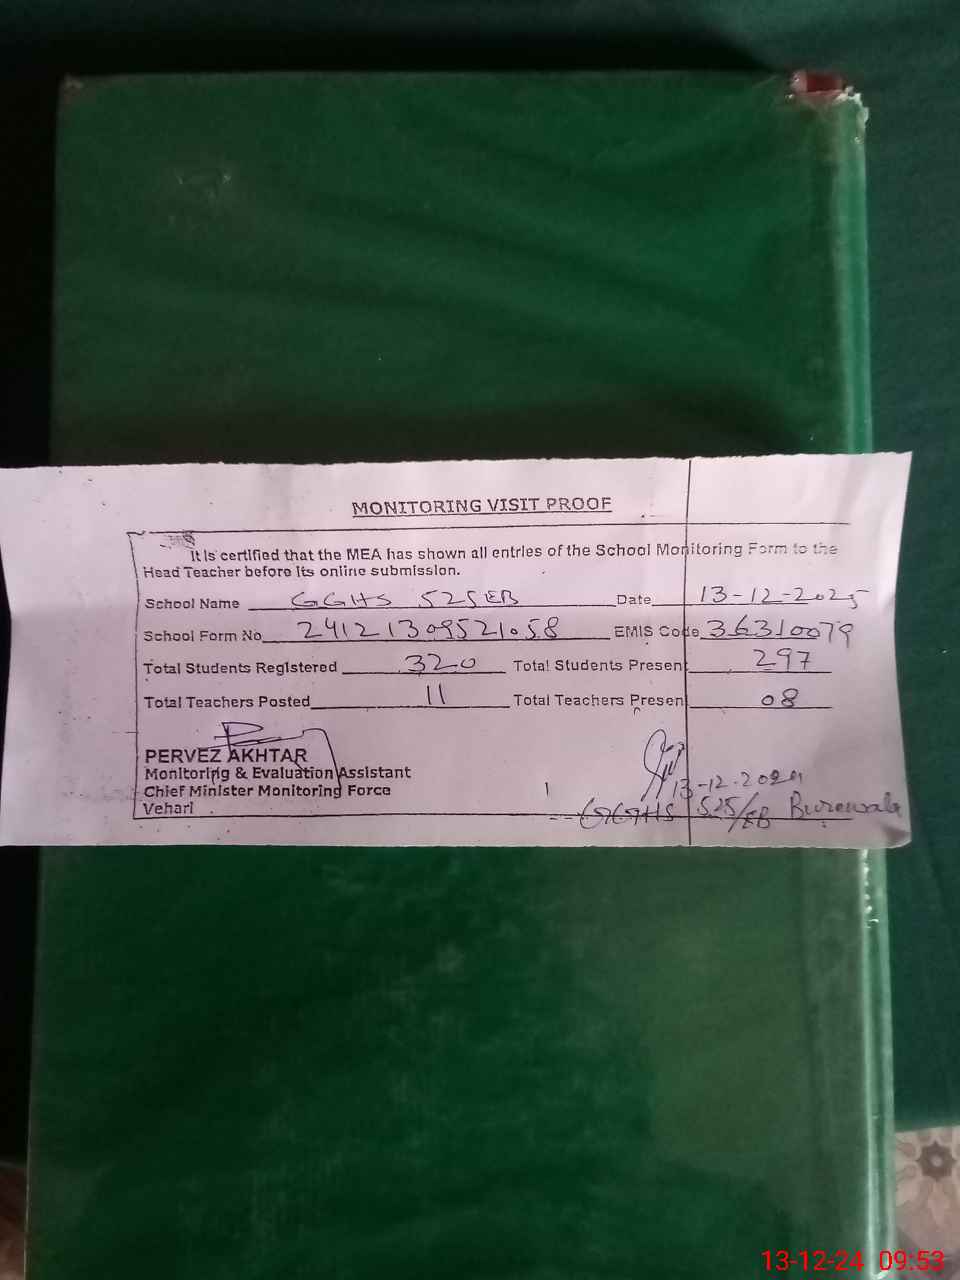 MONITORING VISIT PROOF
It is certified that the MEA has shown all entries of the School Monitoring Form to the
Head Teacher before its online submission.
School Name GGHS 525 EB Date 13-12-2025
School Form No 24121309521058 EMIS Code 36310079
Total Students Registered 320 Total Students Present 297
Total Teachers Posted 11 Total Teachers Present 08
PERVEZ AKHTAR
Monitoring & Evaluation Assistant
Chief Minister Monitoring Force
Vehari
13-12-2024
GGHS 525/EB Burewala
13-12-24 09:53